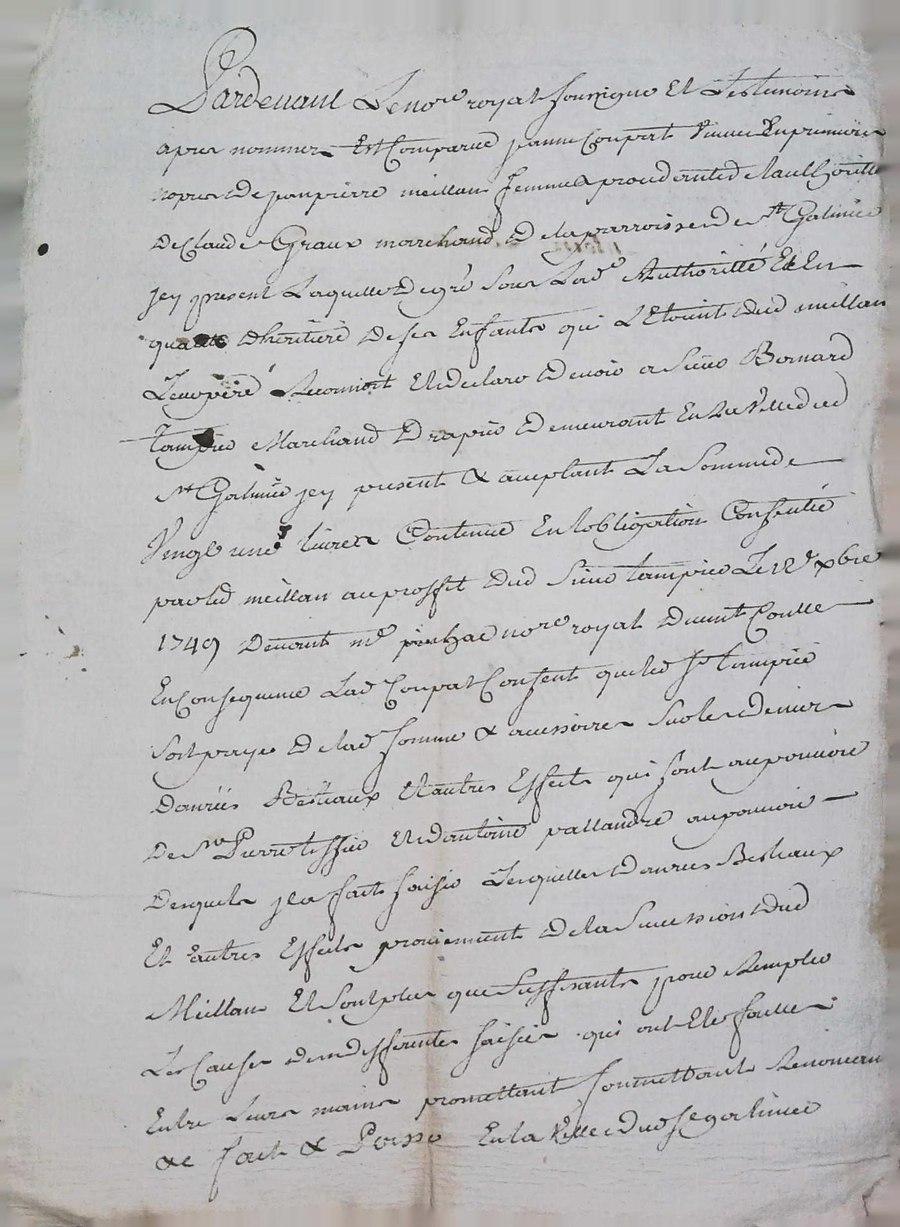 Pardevant Le no.re royal soussigné Et Les temoins
apres nommes Est Comparüe jeanne Coupat Veuve En premieres
nopces De jean pierre meillan femme procedente de lauthoritté
De Claude Graux marchand De la parroisse De St Galmier
jcy present Laquelle De gré Sous Lad.e Authoritté Et En
qualité Dheritiere De ses Enfants qui L'Etoint Dud meillan
Leur pére Reconnoit Et declare Devoir a Sieur Bernard
tampier Marchand Drapier Demeurant En La Ville dud
St Galmier jcy present & acceptant La Somme de
Vingt une livres Contenüe En Lobligation Consentie
par led meillan au proffit Dud Sieur tampier Le 12.e xbre
1749 Devant m.e no.re royal Dument Collé
En Consequence Lad Coupat Consent que led Sr tampier
Soit payé De lad Somme & accessoires Sur les Deniers
Danrées Bestiaux Et autres Effects qui sont au pouvoir
De Sr Pierre tissier Et D'antoine pallandre au pouvoir
Desquels jl a fait saisir Lesquelles Danrées Bestiaux
Et autres Effects proviennent De la Succession Dud
Meillan Et Sont plus que Suffisants pour Remplir
Les Causes Des differentes saisies qui ont Eté faittes
Entre Leurs mains promettant soumettant Renoncant
&c fait & Passé En la Ville Dud St galmier